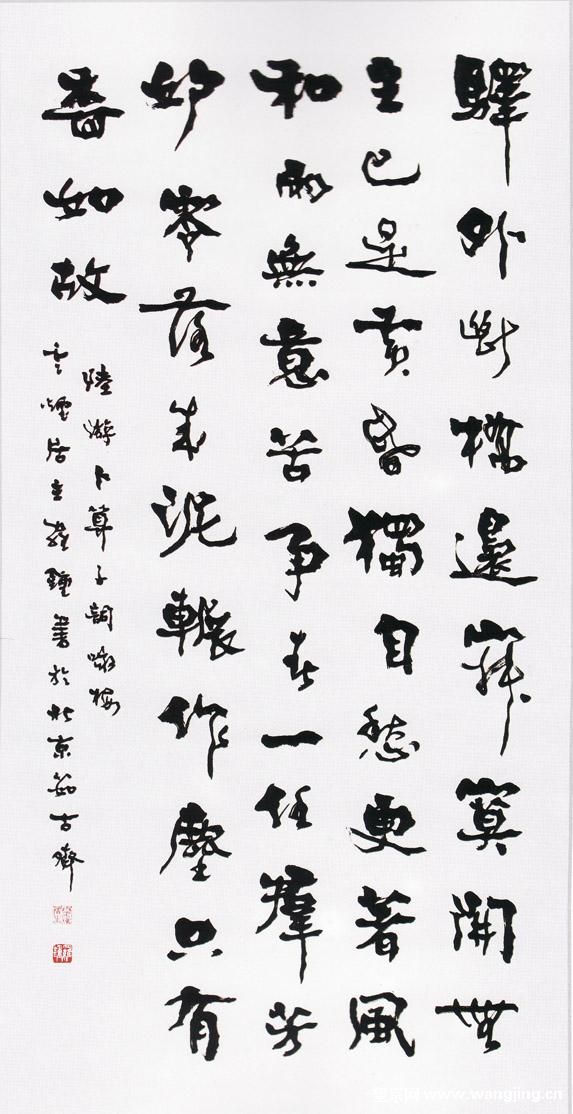 驛外斷橋邊寂寞開無
主已是黃昏獨自愁更著風
和雨無意苦爭春一任羣芳
妒零落成泥輾作塵只有
香如故
陸游卜算子詞詠梅
雲煙居主鍾書於北京茹古齋
望京网 www.wangjing.cn